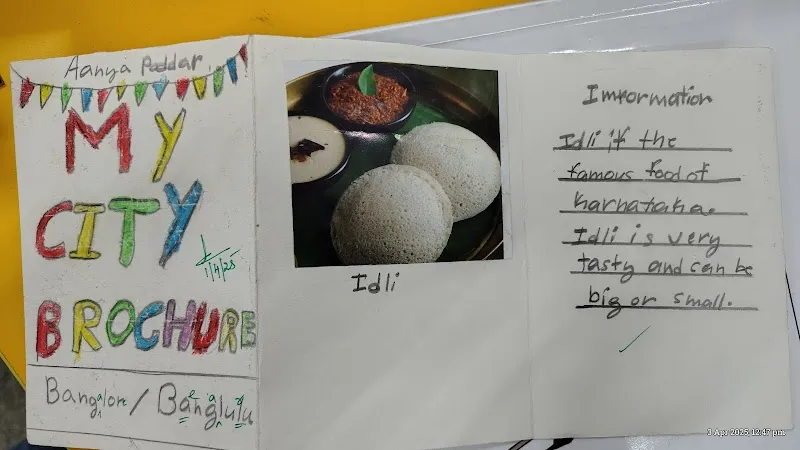 Aanya Poddar
MY
CITY
1/4/25
BROCHURE
Bangalore / Banglulu
Idli
Imformation
Idli if the
famous food of
karnataka.
Idli is very
tasty and can be
big or small.
3 Apr 2025, 12:47 pm